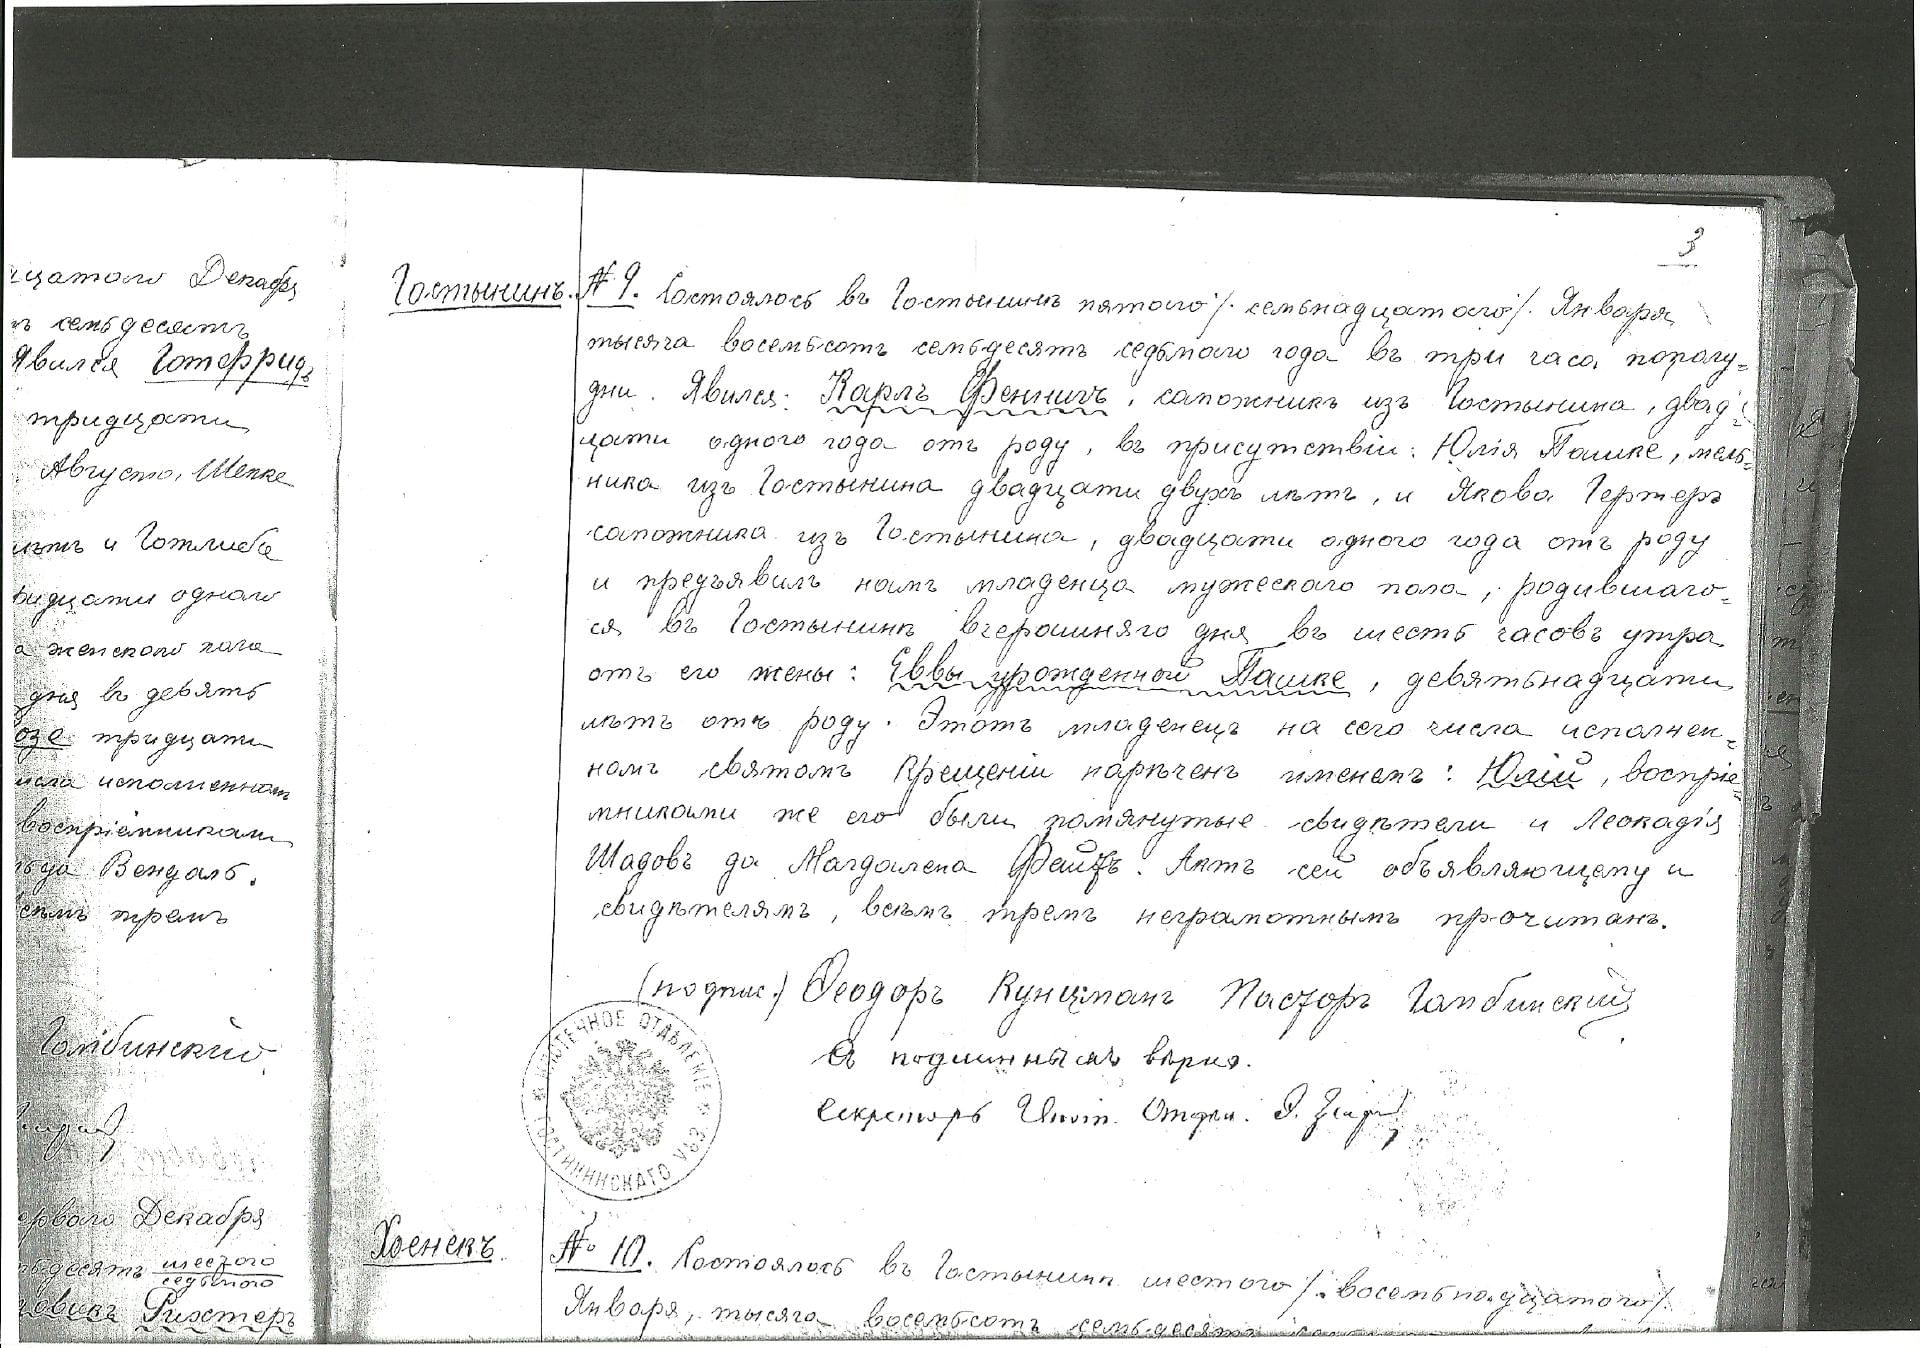 3
Декабря
семьдесятъ
Явился Готтфридъ
тридцати
Августа, Шепке
и Готлиба
одного
женскаго пола
дня въ девять
тридцати
исполненномъ
воспріемниками
Вендалъ.
тремъ
Гомбинскій.
Декабря
шестого
седьмого
Рихтеръ
Гостынинъ.
№ 9. Состоялось въ Гостынинѣ пятого /. семьнадцатого /. Января
тысяча восемьсотъ семьдесятъ седьмаго года въ три часа полу-
дни. Явился: Карлъ Феннигъ, сапожникъ изъ Гостынина, двад-
цати одного года отъ роду, въ присутствіи: Юлія Пашке, мель-
ника изъ Гостынина двадцати двухъ лѣтъ, и Якова Гертеръ
сапожника изъ Гостынина, двадцати одного года отъ роду
и предъявилъ намъ младенца мужескаго пола, родившаго-
ся въ Гостынинѣ вчерашняго дня въ шесть часовъ утра
отъ его жены: Еввы урожденной Пашке, девятьнадцати
лѣтъ отъ роду. Этотъ младенецъ на сего числа исполнен-
номъ святомъ Крещеніи нареченъ именемъ: Юлій, воспріе-
мниками же его были помянутые свидѣтели и Леокадія
Шадовъ да Магдалена Фейтъ. Актъ сей объявляющему и
свидѣтелямъ, всѣмъ тремъ неграмотнымъ прочитанъ.
(подпис.) Ѳеодоръ Кунцманъ Пасторъ Гомбинскій
Съ подлиннымъ вѣрно.
Секретарь Ипот. Отдѣл.
ИПОТЕЧНОЕ ОТДѢЛЕНІЕ ГОСТИНИНСКАГО УѢЗ.
Хоенекъ.
№ 10. Состоялось въ Гостынинѣ шестого /. восемьнадцатого /.
Января, тысяча восемьсотъ семьдесятъ